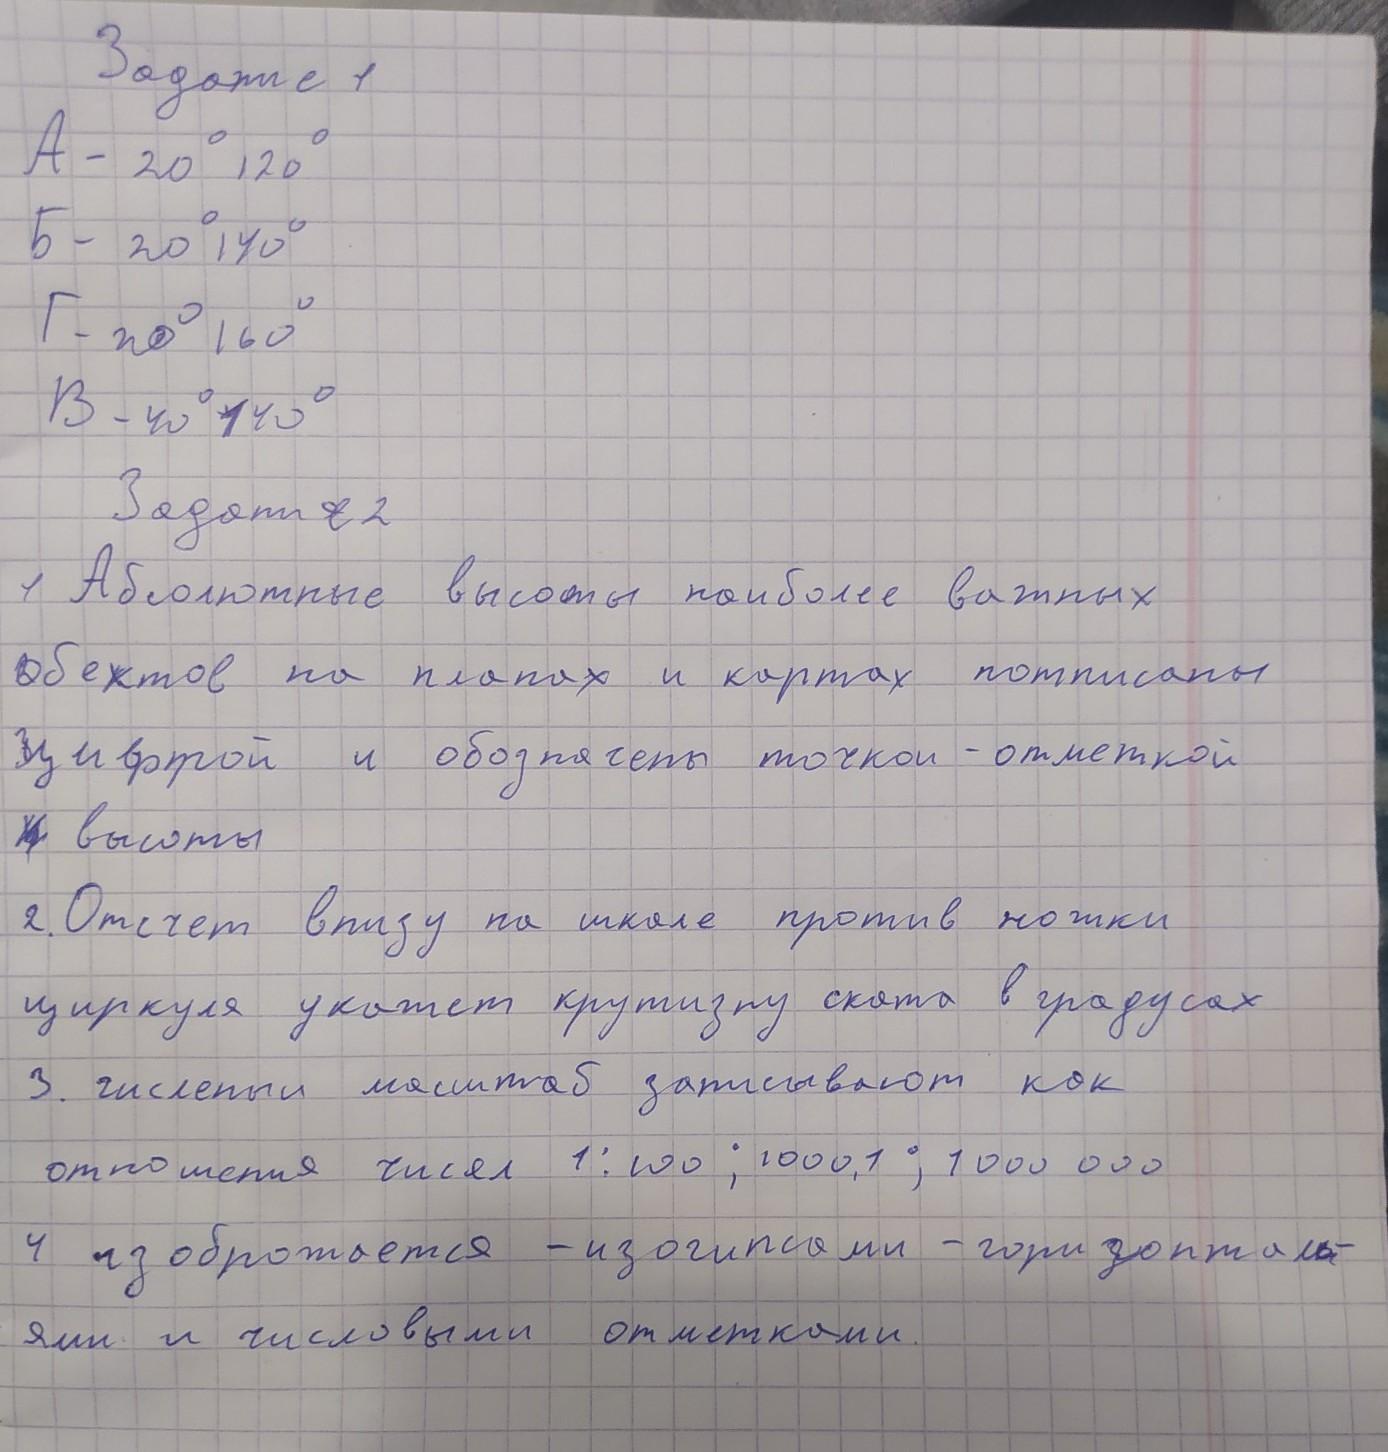 Задание 1
А - 20° 120°
Б - 20° 140°
Г - 20° 160°
В - 40° 140°
Задание 2
1 Абсолютные высоты наиболее важных
обектов на планах и картах потписаны
цифрой и обозначены точкой - отметкой
высоты
2. Отсчет внизу на шкале против ножки
циркуля укажет крутизну ската в градусах
3. численый масштаб записывают как
отношения чисел 1:100; 1000,1; 1000 000
4 изоброжается - изогипсами - горизонталь-
ями и числовыми отметками.